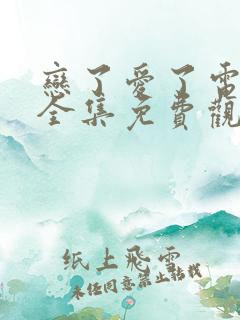 戀了愛了電
全集免費觀
纸上飛雲
未经同意禁止转载